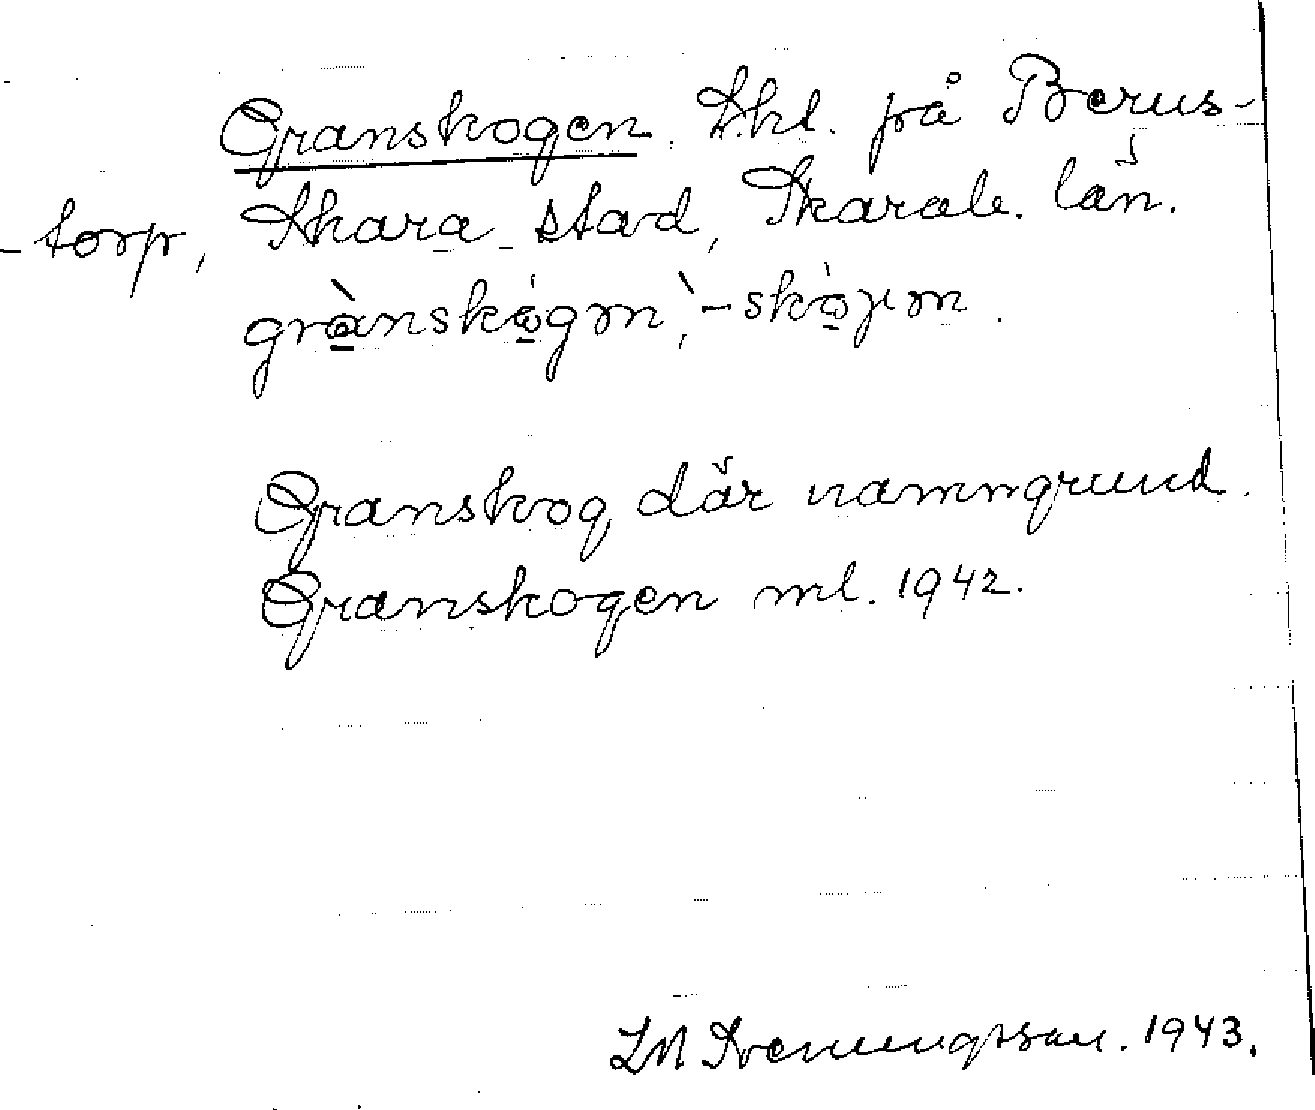 Granskogen. Skl. på Berus-
-torp, Skara stad, Skarab. län.
grànskógən, -skójən.
Granskog där namngrund.
Granskogen ml. 1942.
1943.